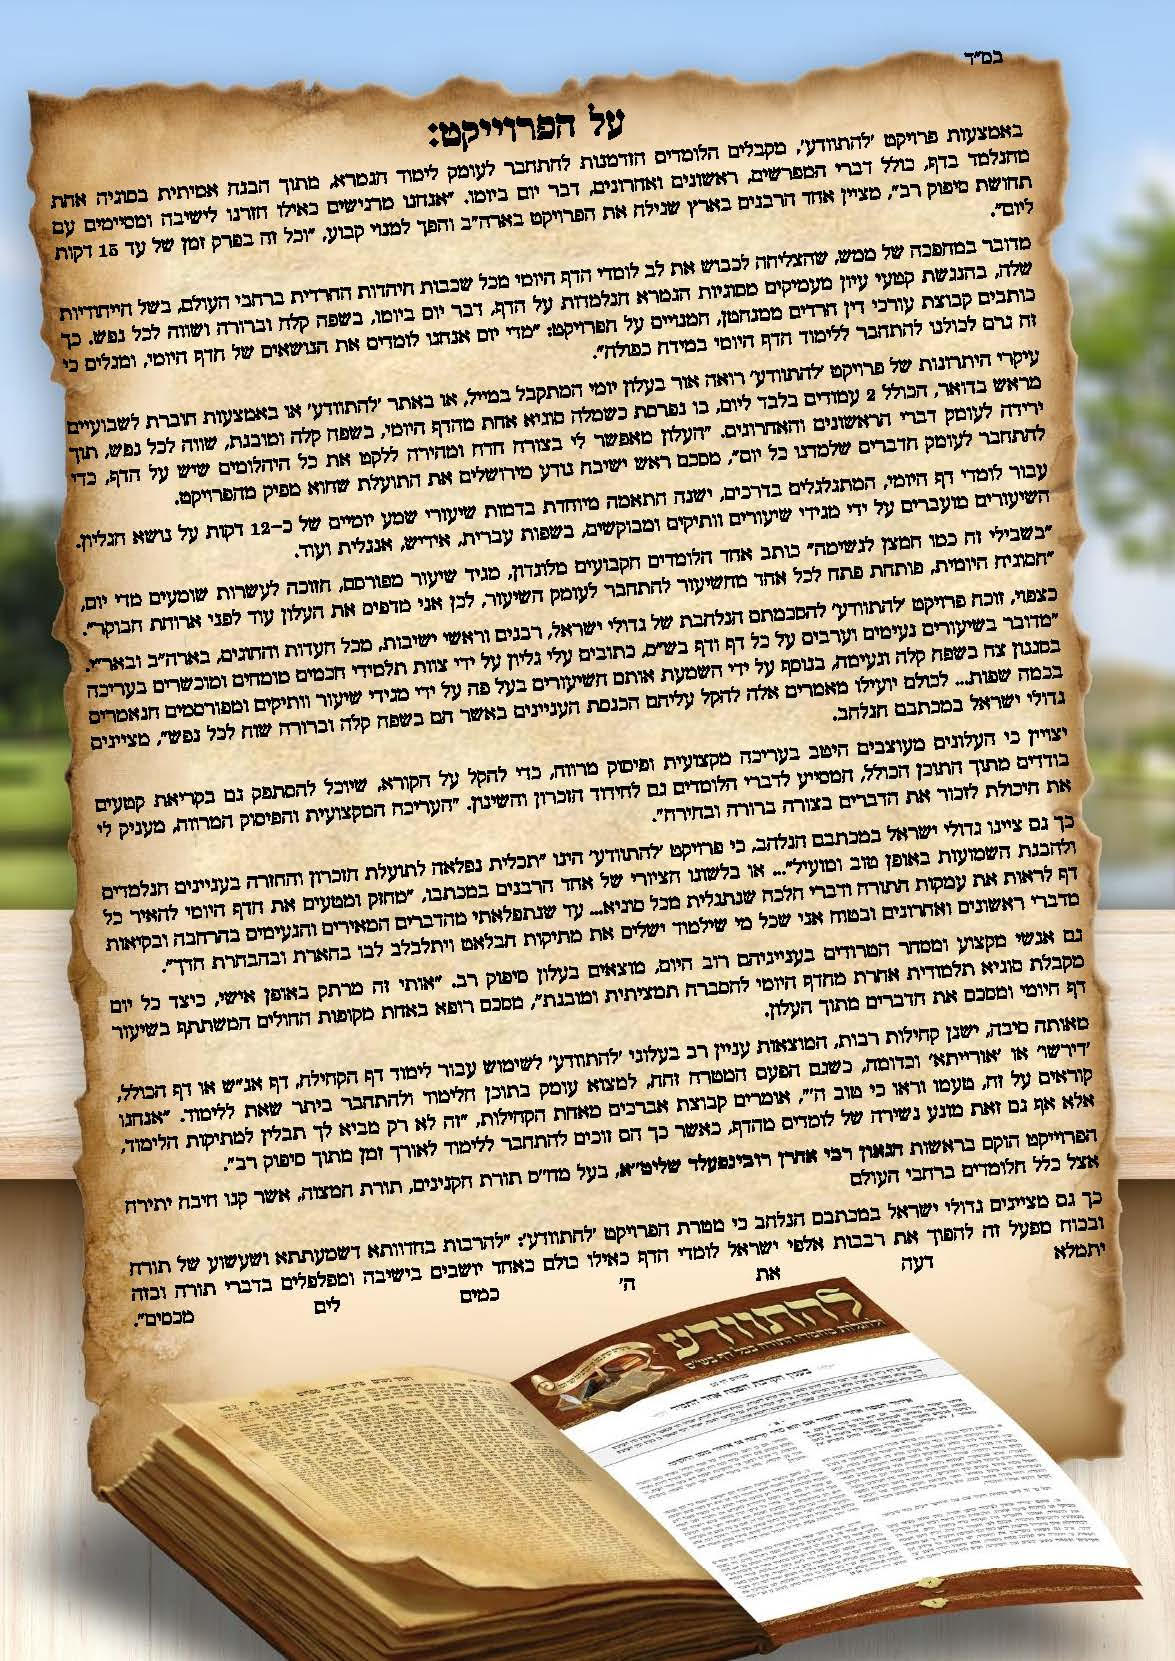 בס"ד
על הפרוייקט:
באמצעות פרויקט 'להתוודע', מקבלים הלומדים הזדמנות להתחבר לעומק לימוד הגמרא, מתוך הבנה אמיתית בסוגיה אחת
מהנלמד בדף, כולל דברי המפרשים, ראשונים ואחרונים, דבר יום ביומו. "אנחנו מרגישים כאילו חזרנו לישיבה ומסיימים עם
תחושת סיפוק רב", מציין אחד הרבנים בארץ שגילה את הפרויקט בארה"ב והפך למנוי קבוע, "וכל זה בפרק זמן של עד 15 דקות
ליום".
מדובר במהפכה של ממש, שהצליחה לכבוש את לב לומדי הדף היומי מכל שכבות היהדות החרדית ברחבי העולם, בשל הייחודיות
שלה, בהנגשת קטעי עיון מעמיקים מסוגיות הגמרא הנלמדות על הדף, דבר יום ביומו, בשפה קלה וברורה ושווה לכל נפש. כך
כותבים קבוצת עורכי דין חרדים ממנהטן, המנויים על הפרויקט: "מדי יום אנחנו לומדים את הנושאים של הדף היומי, ומגלים כי
זה גרם לכולנו להתחבר ללימוד הדף היומי במידה כפולה".
עיקרי היתרונות של פרויקט 'להתוודע' רואה אור בעלון יומי המתקבל במייל, או באתר 'להתוודע' או באמצעות חוברת לשבועיים
מראש בדואר, הכולל 2 עמודים בלבד ליום, בו נפרסת כשמלה סוגיא אחת מהדף היומי, בשפה קלה ומובנת, שווה לכל נפש, תוך
ירידה לעומק דברי הראשונים והאחרונים. "העלון מאפשר לי בצורה חדה ומהירה ללקט את כל היהלומים שיש על הדף, כדי
להתחבר לעומק הדברים שלמדנו כל יום", מסכם ראש ישיבה נודע מירושלים את התועלת שהוא מפיק מהפרויקט.
עבור לומדי דף היומי, המתגלגלים בדרכים, ישנה התאמה מיוחדת בדמות שיעורי שמע יומיים של כ-12 דקות על נושא הגליון.
השיעורים מועברים על ידי מגידי שיעורים וותיקים ומבוקשים, בשפות עברית, אידיש, אנגלית ועוד.
"בשבילי זה כמו חמצן לנשימה" כותב אחד הלומדים הקבועים מלונדון, מגיד שיעור מפורסם, הזוכה לעשרות שומעים מדי יום,
"הסוגיה היומית, פותחת פתח לכל אחד מהשיעור להתחבר לעומק השיעור, לכן אני מדפיס את העלון עוד לפני ארוחת הבוקר".
כצפוי, זוכה פרויקט 'להתוודע' להסכמתם הנלהבת של גדולי ישראל, רבנים וראשי ישיבות, מכל העדות והחוגים, בארה"ב ובאר"י.
"מדובר בשיעורים נעימים וערבים על כל דף ודף בש"ס, כתובים עלי גליון על ידי צוות תלמידי חכמים מומחים ומוכשרים בעריכה
בסגנון צח בשפה קלה ונעימה, בנוסף על ידי השמעת אותם השיעורים בעל פה על ידי מגידי שיעור וותיקים ומפורסמים הנאמרים
בכמה שפות... לכולם יועילו מאמרים אלה להקל עליהם הכנסת העניינים באשר הם בשפה קלה וברורה שוה לכל נפש", מציינים
גדולי ישראל במכתבם הנלהב.
יצויין כי העלונים מעוצבים היטב בעריכה מקצועית ופיסוק מרווח, כדי להקל על הקורא, שיוכל להסתפק גם בקריאת קטעים
בודדים מתוך התוכן הכולל, המסייע לדברי הלומדים גם לחידוד הזכרון והשינון. "העריכה המקצועית והפיסוק המרווח, מעניק לי
את היכולת לזכור את הדברים בצורה ברורה ובהירה".
כך גם ציינו גדולי ישראל במכתבם הנלהב, כי פרויקט 'להתוודע' הינו "תכלית נפלאה לתועלת הזכרון והחזרה בעניינים הנלמדים
ולהבנת השמועות באופן טוב ומועיל"... או בלשונו הציורי של אחד הרבנים במכתבו, "מחזק ומטעים את הדף היומי להאיר כל
דף לראות את עמקות התורה ודברי הלכה שנתגלית מכל סוגיא... עד שנתפלאתי מהדברים המאירים והנעימים בהרחבה ובקיאות
מדברי ראשונים ואחרונים ובטוח אני שכל מי שילמוד ישלים את מתיקות הבלאט ויתלבלב לבו בהארת ובהבהרת הדף".
גם אנשי מקצוע ומסחר הטרודים בענייניהם רוב היום, מוצאים בעלון סיפוק רב. "אותי זה מרתק באופן אישי, כיצד כל יום
מקבלת סוגיא תלמודית אחרת מהדף היומי להסברה תמציתית ומובנת", מסכם רופא באחת מקופות החולים המשתתף בשיעור
דף היומי ומסכם את הדברים מתוך העלון.
מאותה סיבה, ישנן קהילות רבות, המוצאות עניין רב בעלוני 'להתוודע' לשימוש עבור לימוד דף הקהילה, דף אנ"ש או דף הכולל,
'דירשו' או 'אורייתא' וכדומה, כשגם הפעם המטרה זהה, למצוא עומק בתוכן הלימוד ולהתחבר ביתר שאת ללימוד. "אנחנו
קוראים על זה, טעמו וראו כי טוב ה'", אומרים קבוצת אברכים מאחת הקהילות, "זה לא רק מביא לך תבלין למתיקות הלימוד,
אלא אף גם זאת מונע נשירה של לומדים מהדף, כאשר כך הם זוכים להתחבר ללימוד לאורך זמן מתוך סיפוק רב".
הפרוייקט הוקם בראשות הגאון רבי אהרן רובינפעלד שליט"א, בעל מח"ס תורת הקנינים, תורת המצוה, אשר קנו חיבה יתירה
אצל כלל הלומדים ברחבי העולם
כך גם מציינים גדולי ישראל במכתבם הנלהב כי מטרת הפרויקט 'להתוודע': "להרבות בחדוותא דשמעתתא ושעשוע של תורה
ובכוח מפעל זה להפוך את רבבות אלפי ישראל לומדי הדף כאילו כולם כאחד יושבים בישיבה ומפלפלים בדברי תורה ובזה
יתמלא דעה את ה' כמים לים מכסים".
להתוודע